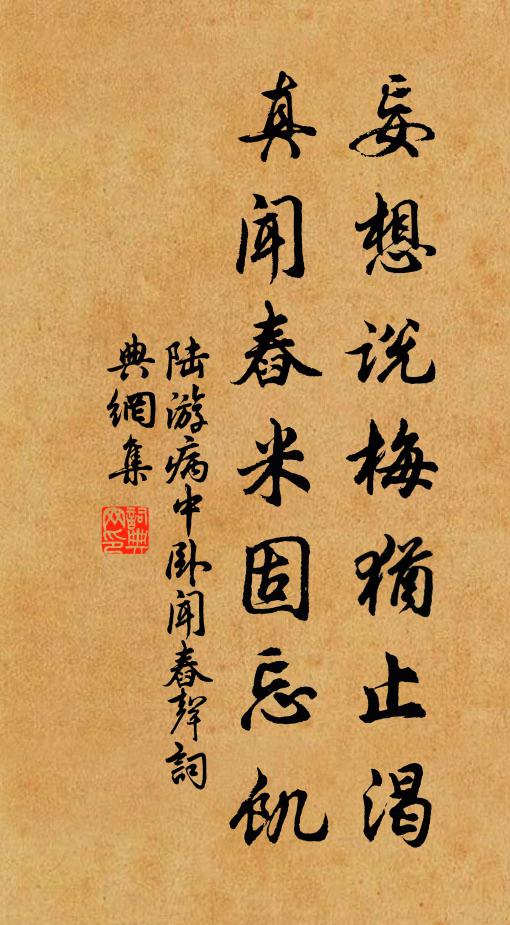 妄想说梅犹止渴
真闻舂米固忘飢
陆游病中卧闻舂聲詞
典網集
詞典